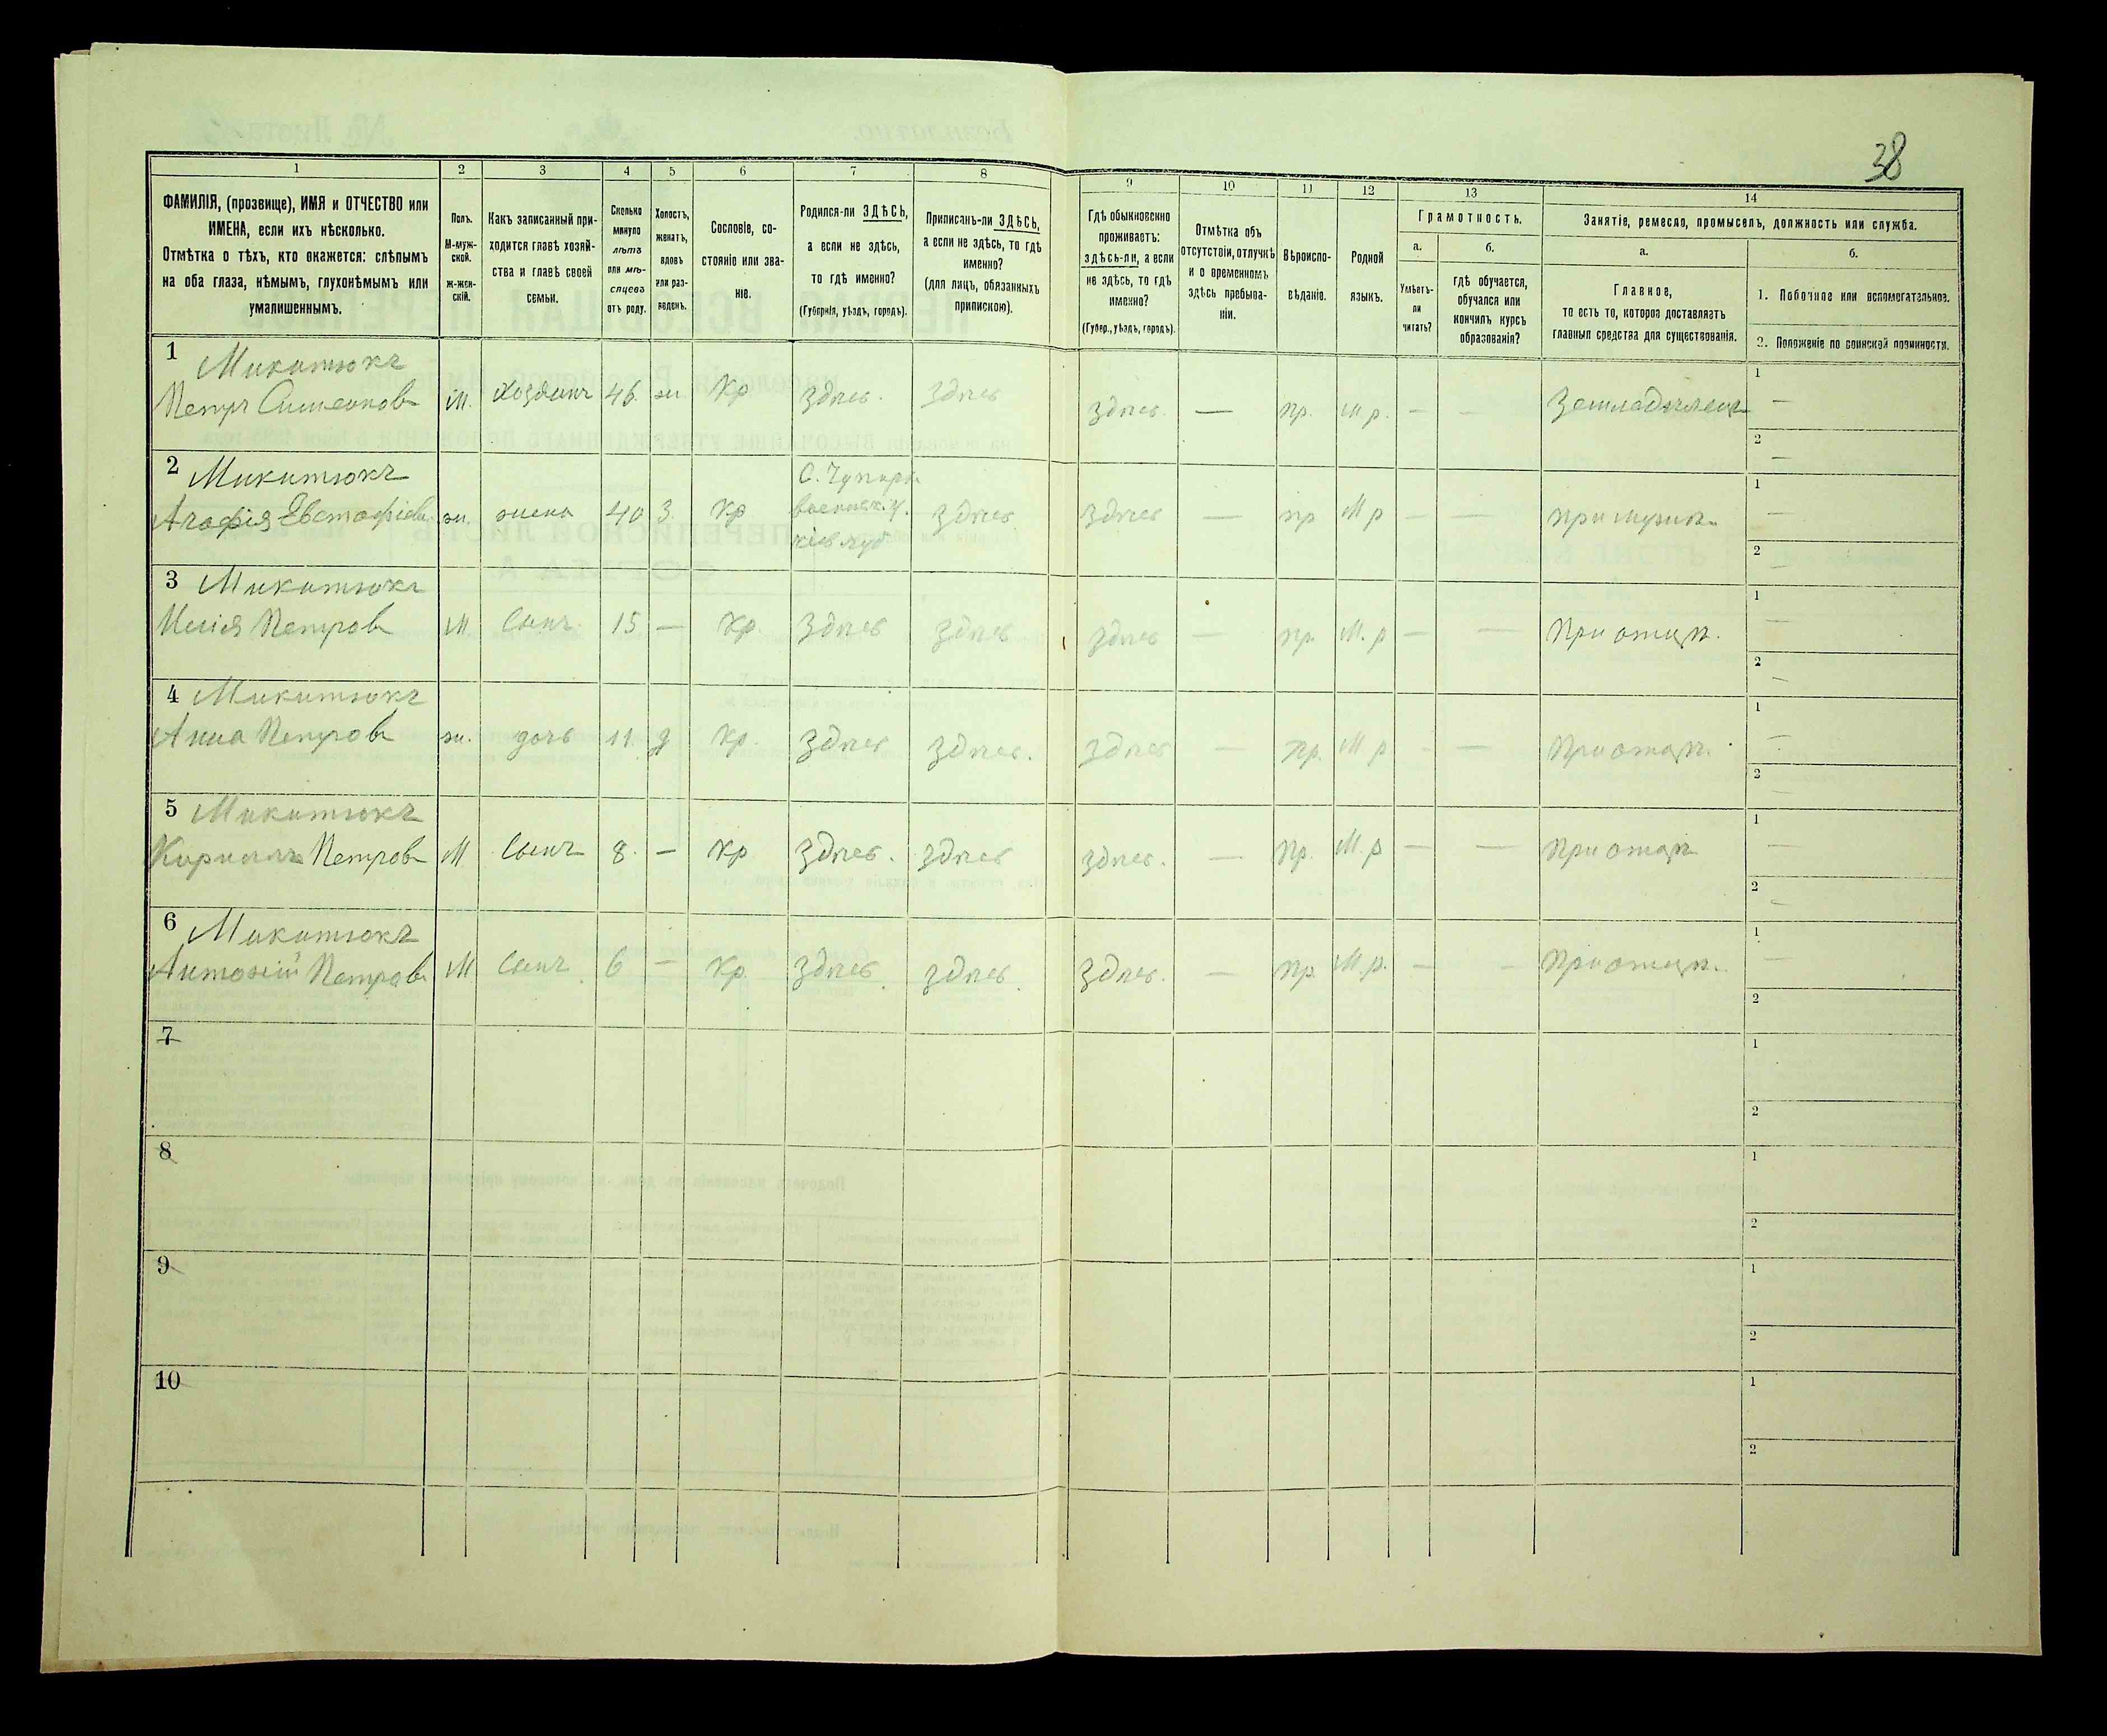 38
1
2
3
4
5
6
7
8
9
10
11
12
13
14
ФАМИЛІЯ, (прозвище), ИМЯ и ОТЧЕСТВО или
ИМЕНА, если ихъ нѣсколько.
Отмѣтка о тѣхъ, кто окажется: слѣпымъ
на оба глаза, нѣмымъ, глухонѣмымъ или
умалишеннымъ.
Полъ.
М-муж-
ской.
ж-жен-
скій.
Какъ записанный при-
ходится главѣ хозяй-
ства и главѣ своей
семьи.
Сколько
минуло
лѣтъ
или мѣ-
сяцевъ
отъ роду.
Холостъ,
женатъ,
вдовъ
или раз-
веденъ.
Сословіе, со-
стояніе или зва-
ніе.
Родился-ли ЗДѢСЬ,
а если не здѣсь,
то гдѣ именно?
(Губернія, уѣздъ, городъ).
Приписанъ-ли ЗДѢСЬ,
а если не здѣсь, то гдѣ
именно?
(для лицъ, обязанныхъ
припискою).
Гдѣ обыкновенно
проживаетъ:
здѣсь-ли, а если
не здѣсь, то гдѣ
именно?
(Губер., уѣздъ, городъ).
Отмѣтка объ
отсутствіи, отлучкѣ
и о временномъ
здѣсь пребыва-
ніи.
Вѣроиспо-
вѣданіе.
Родной
языкъ.
Грамотность.
а.
б.
Умѣетъ-
ли
читать?
гдѣ обучается,
обучался или
кончилъ курсъ
образованія?
Занятіе, ремесло, промыселъ, должность или служба.
а.
б.
Главное,
то есть то, которое доставляетъ
главныя средства для существованія.
1. Побочное или вспомогательное.
2. Положеніе по воинской повинности.
1 Микитюкъ
Петръ Симеоновъ м. Хозяинъ 46. ж. Кр здѣсь. здѣсь здѣсь. — пр. м р. — — Земледѣлецъ 1 —
2 —
2 Микитюкъ
Агафія Евстафіева ж. жена 40 з. кр С.
кіев губ здѣсь здѣсь — пр М р — — при мужѣ 1 —
2 —
3 Микитюкъ
Петров М Сынъ 15 — Кр. здѣсь здѣсь здѣсь — пр. М. р — — При отцѣ. 1 —
2 —
4 Микитюкъ
Анна Петров ж. дочь 11. д Кр. здѣсь здѣсь. здѣсь — пр. М р — — При отцѣ. 1 —
2 —
5 Микитюкъ
Кириллъ Петров М. Сынъ 8. — Кр здѣсь. здѣсь здѣсь. — пр. М. р — — При отцѣ 1 —
2 —
6 Микитюкъ
Антоній Петров М Сынъ 6 — Кр. здѣсь здѣсь. здѣсь. — пр. М. р. — — При отцѣ. 1 —
2
7 1
2
8 1
2
9 1
2
10 1
2